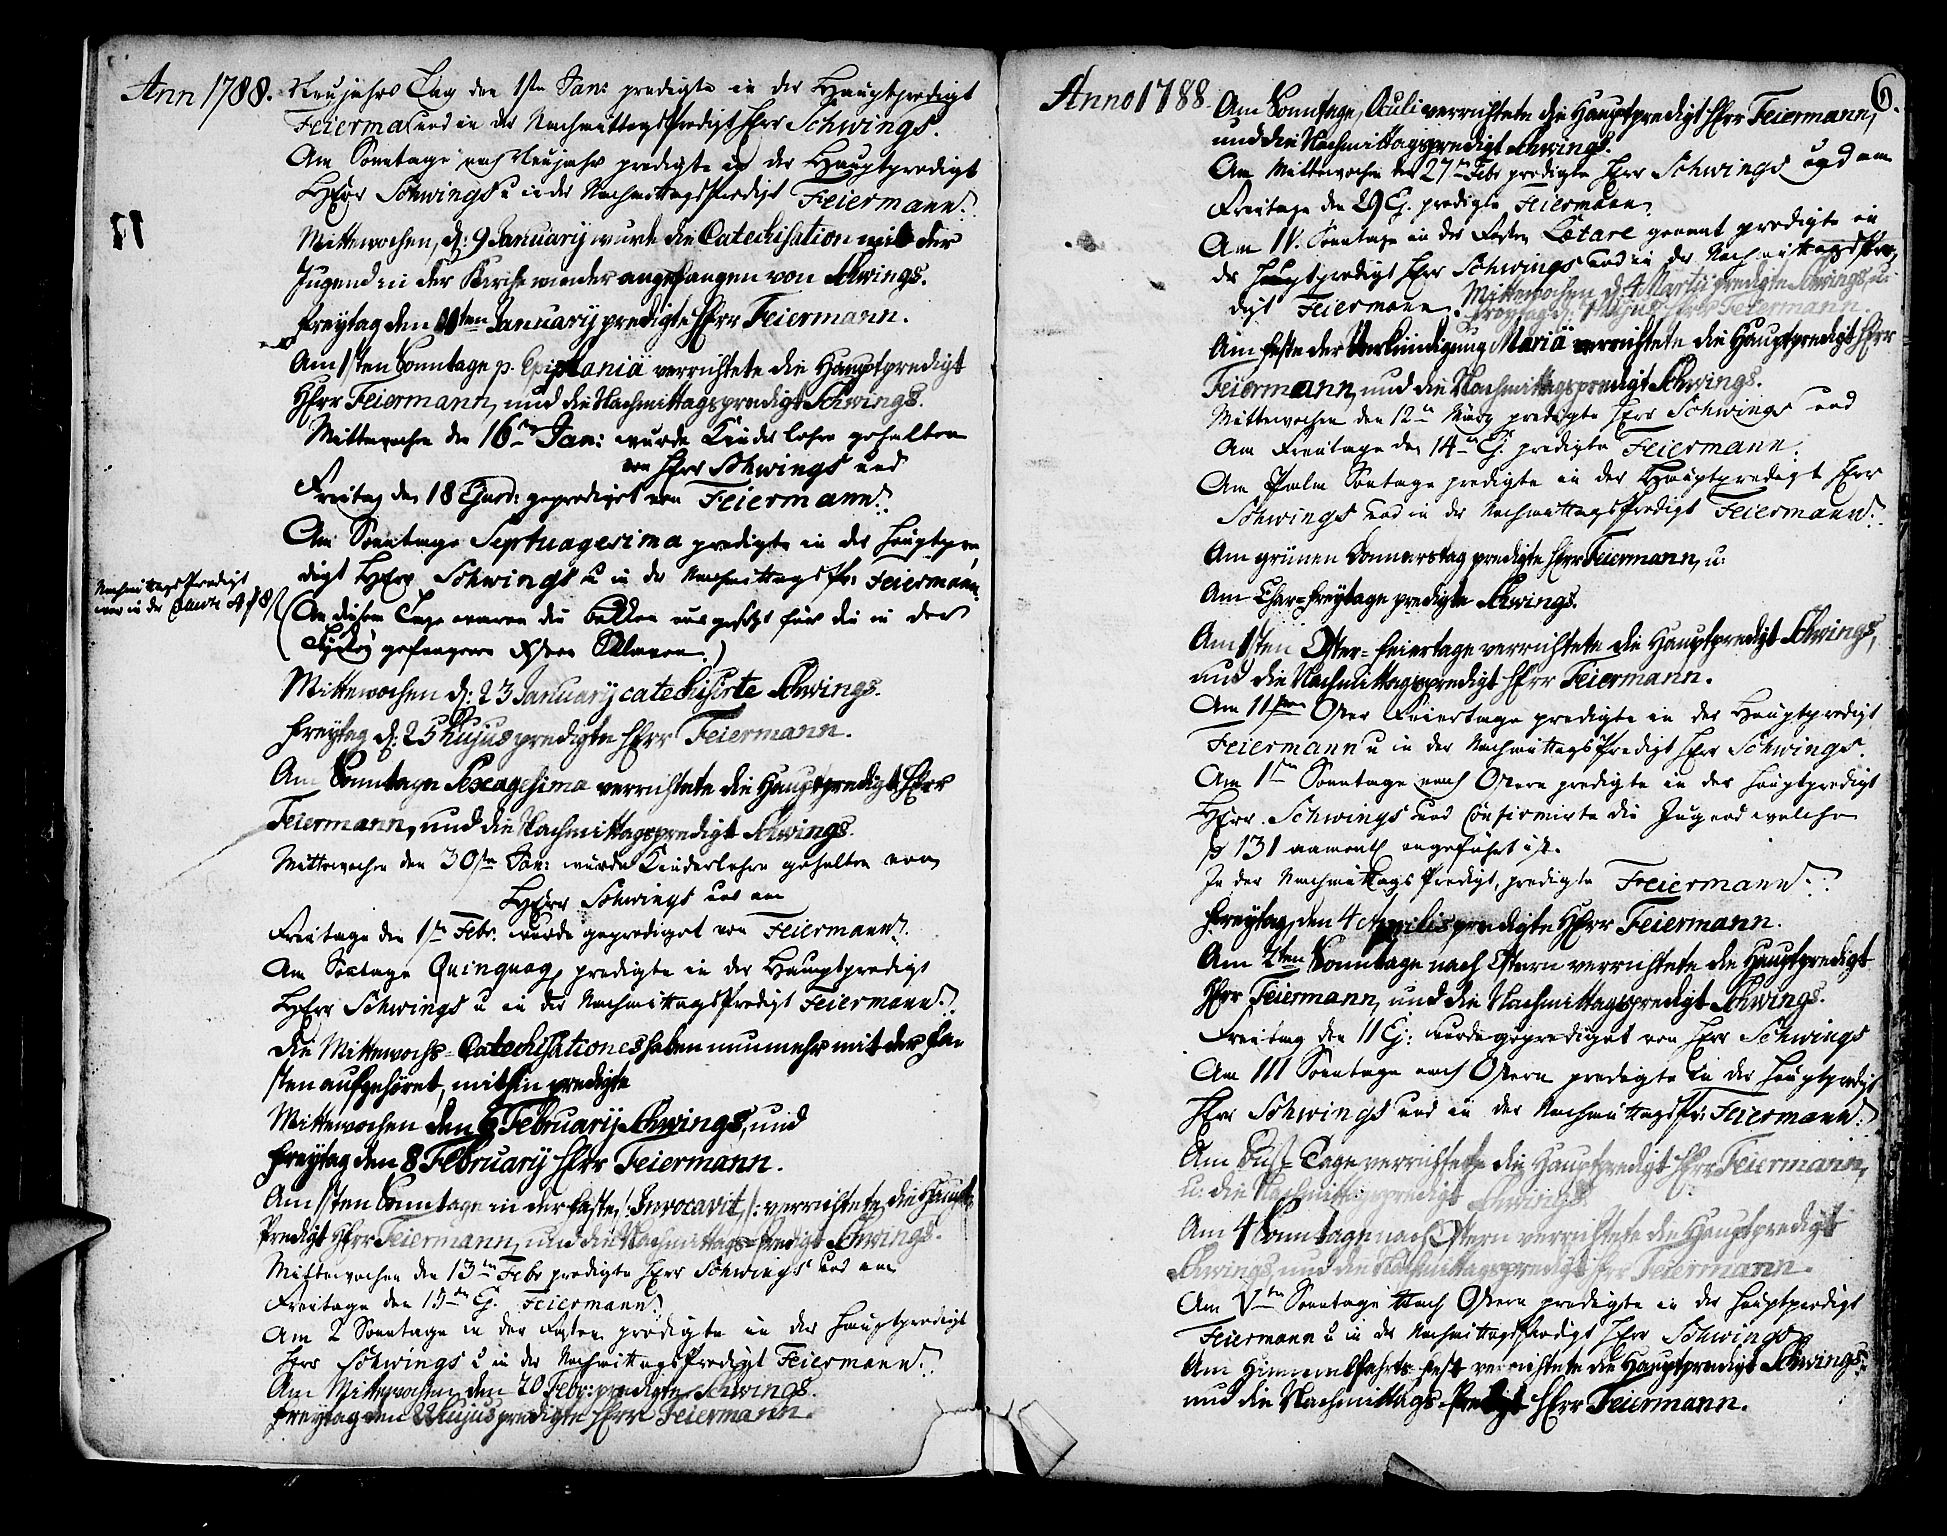 Ann 1788. Neujahrs Tag den 1ste Jan: predigte in der Hauptpredigt
Feierma und in der NachmittagsPredigt Herr Schwings.
Am Sonntage nach Neujahr predigte in der Hauptpredigt
HErr Schwings u in der NachmittagsPredigt Feiermann.
Mittewochen, d: 9 January wurde die Catechisation mit der
Jugend in der Kirche wieder angefangen von Schwings.
freytag den 11ten January predigte Herr Feiermann.
Am 1sten Sonntage p. Epiphaniä verrichtete die Hauptpredigt
Herr Feiermann, und die Nachmittagspredigt Schwings.
Mittewochen den 16ten Jan: wurde Kinderlehre gehalten
von Herr Schwings und
Freitag den 18 Ejusd: geprediget von Feiermann.
Am Sonntage Septuagesima predigte in der Hauptpre
digt HErr Schwings u in der Nachmittagspr: Feiermann.
NachmittagsPredigt
war in der
(An diesem Tage waren die Becken ausgesetzt für die in der
Türkey gefangene Sklaven.)
Mittewochen d: 23 January catechisirte Schwings.
freytag d: 25 hujus predigte Herr Feiermann.
Am Sonntage Sexagesima verrichtete die Hauptpredigt Herr
Feiermann, und die Nachmittagspredigt Schwings.
Mittewochen den 30ste Jan: wurde Kinderlehre gehalten von
HErr Schwings und am
Freitage den 1ste Febr. wurde geprediget von Feiermann.
Am Sontage Quinquag predigte in der Hauptpredigt
HErr Schwings u in der NachmittagsPredigt Feiermann.
die Mittewochs=Catechisationes haben nunmehr mit der fa-
sten aufgehöret, mithin predigte
Mittewochen den 6 February Schwings, und
freytag den 8 February Herr Feiermann.
Am 1sten Sonntage in der faste /: Invocavit, /: verrichtete die Haupt=
Predigt Herr Feiermann, und die Nachmittags=Predigt Schwings.
Mittewochen den 13ten Febr predigte Herr Schwings und am
Freitage den 15ten Ej. Feiermann.
Am 2 Sonntage in der Fasten predigte in der Hauptpredigt
Herr Schwings u in der NachmittagsPredigt Feiermann.
Am Mittewochen den 20 Febr: predigte Schwings.
freytag den 22 hujus predigte Herr Feiermann.
6.
Anno 1788. Am Sonntage Oculi verrichtete die Hauptpredigt Herr Feiermann,
und die Nachmittagspredigt Schwings.
Am Mittewochen den 27ten Febr predigte Herr Schwings und am
Freitage den 29 Ej. predigte Feiermann.
Am IV. Sonntage in der Fasten Lætare genant predigte in
der Hauptpredigt Herr Schwings und in der NachmittagsPre
digt Feiermann. Mittewochen d. 4 Martii predigte Schwings, u:
freytag d: 7 hujus Herr Feiermann.
Am feste der Verkündigung Mariä verrichtete die Hauptpredigt Herr
Feiermann, und die Nachmittagspredigt Schwings.
Mittewochen den 12te März predigte Herr Schwings und
Am Freitage den 14te Ej. predigte Feiermann.
Am Palm Sontage predigte in der Hauptpredigt Herr
Schwings und in der NachmittagsPredigt Feiermann.
Am grünen Donnerstag predigte Herr Feiermann, u:
Am Char=freytage predigte Schwings.
Am 1sten Oster=feiertage verrichtete die Hauptpredigt Schwings,
und die Nachmittagspredigt Herr Feiermann.
Am II ten Oster Feiertage predigte in der Hauptpredigt
Feiermann u in der NachmittagsPredigt Herr Schwings.
Am 1ste Sonntage nach Ostern predigte in der Hauptpredigt
HErr Schwings und Confirmirte die Jugend welche
p 131 namentl angeführt ist.
In der NachmittagsPredigt, predigte Feiermann.
freytag, den 4 Aprilis predigte HErr Feiermann.
Am 2ten Sonntage nach Ostern verrichtete die Hauptpredigt
Herr Feiermann, und die Nachmittagspredigt Schwings.
Freitag den 11 Ej: wurde geprediget von Herr Schwings
Am III Sonntage nach Ostern predigte in der Hauptpredigt
Herr Schwings und in der Nachmittagspr: Feiermann.
Am Buß=Tage verrichtete die Hauptpredigt Herr Feiermann,
u: die Nachmittagspredigt Schwings.
Am 4 Sonntage nach Ostern verrichtete die Hauptpredigt
Schwings, und die Nachmittagspredigt Herr Feiermann.
Am Vten Sonntage Nach Ostern predigte in der Hauptpredigt
Feiermann u in der NachmittagsPredigt Herr Schwings
Am Himmelfahrts=fest verrichtete die Hauptpredigt Schwings,
und die Nachmittags=Predigt Herr Feiermann.